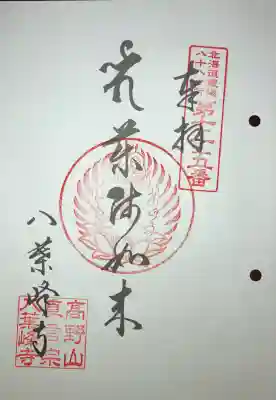 奉拝
北海道霊場
八十八ヶ所
第 五番
薬師如来
八葉峰寺
高野山
真言宗
八葉峰寺